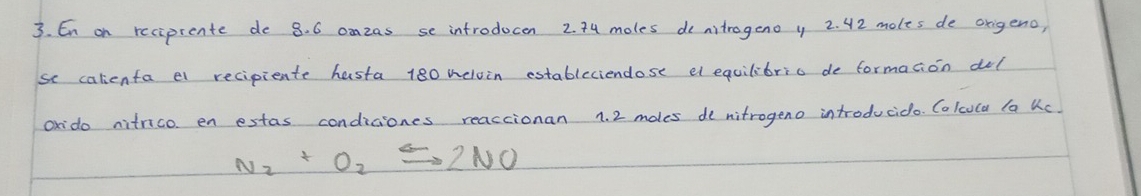 3. En on recipiente de 8.6 onzas se introducen 2.74 moles de nitrogeno y 2.42 moles de origeno,
se calienta el recipiente husta 180 kelvin estableciendose el equilibrio de formación del
oxido nitrico en estas condiciones reaccionan 1.2 moles de nitrogeno introducido. Calcula la Kc.
N₂ + O₂ ⇆ 2NO